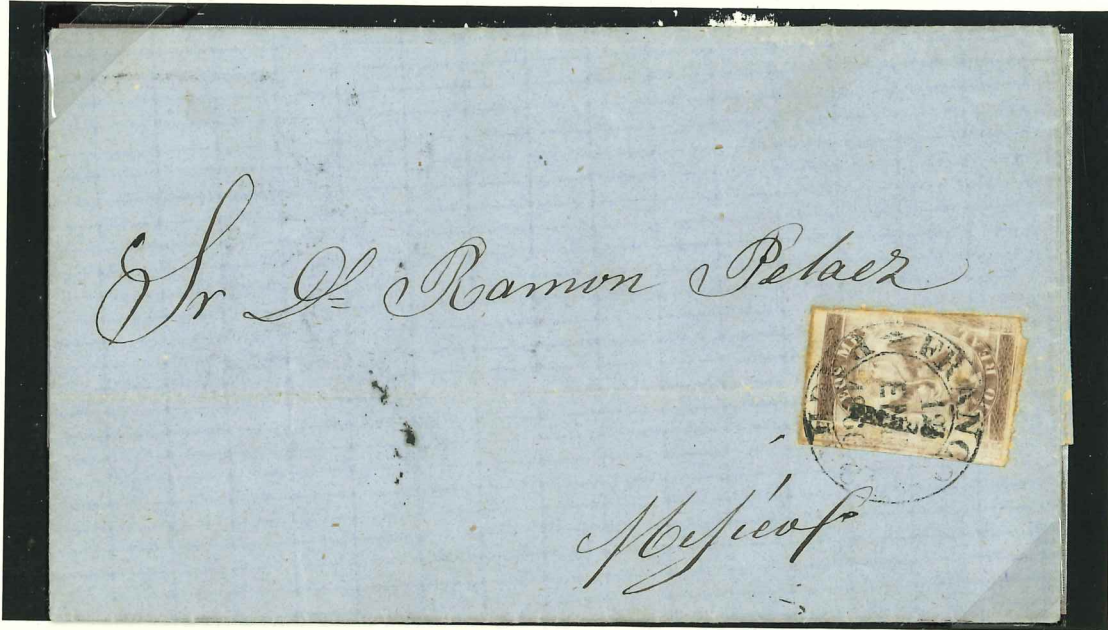 Sr Dn Ramon Pelaez
FRANCO
12
EN
Mejico